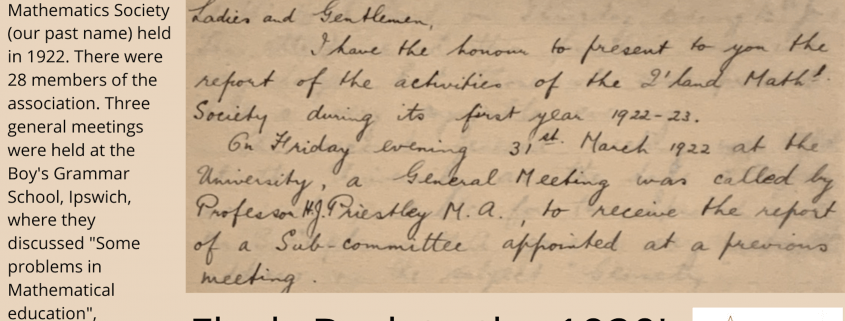 Mathematics Society
(our past name) held
in 1922. There were
28 members of the
association. Three
general meetings
were held at the
Boy's Grammar
School, Ipswich,
where they
discussed "Some
problems in
Mathematical
education",
Ladies and Gentlemen,
I have the honour to present to you the
report of the activities of the Q'land Math!
Society during its first year 1922-23.
On Friday evening 31st. March 1922 at the
University, a General Meeting was called by
Professor H.J. Priestley M.A., to receive the report
of a Sub-committee appointed at a previous
meeting.